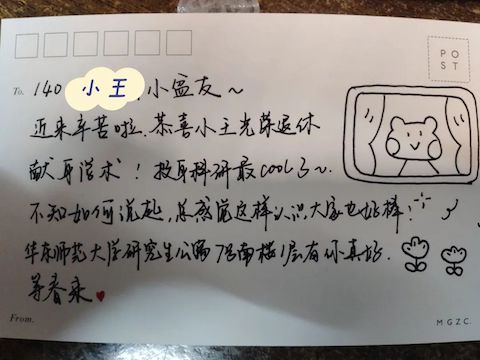 PO
ST
To. 140 小王, 小盆友~
近来辛苦啦、恭喜小王光荣退休
献身学术！投身科研最cool了~.
不知如何说起,总感觉这样认识大家也挺棒！
华东师范大学研究生公寓7号南楼1层有你真好.
等春来
From.
MGZC.